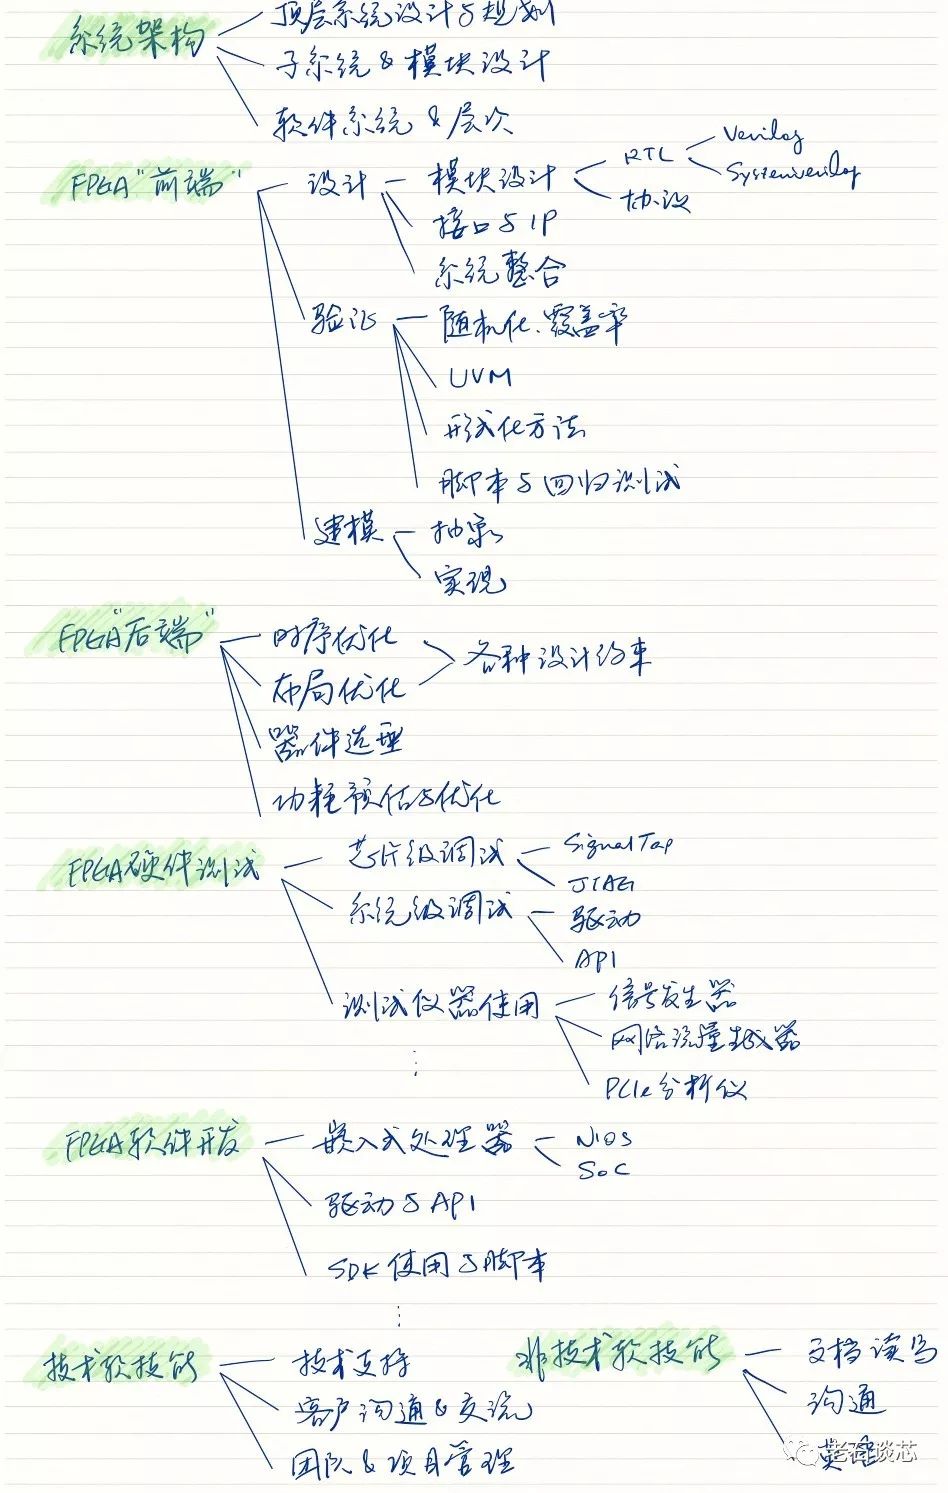 系统架构
顶层系统设计与规划
子系统 & 模块设计
软件系统 & 层次
FPGA"前端"
设计
模块设计
RTL
Verilog
Systemverilog
协议
接口与IP
系统整合
验证
随机化、覆盖率
UVM
形式化方法
脚本与回归测试
建模
抽象
实现
FPGA"后端"
时序优化
布局优化
各种设计约束
器件选型
功耗预估与优化
FPGA硬件测试
芯片级调试
SignalTap
JTAG
系统级调试
驱动
API
测试仪器使用
信号发生器
网络流量生成器
PCIe分析仪
FPGA软件开发
嵌入式处理器
NIOS
SoC
驱动与API
SDK使用与脚本
技术软技能
技术支持
客户沟通 & 交流
团队 & 项目管理
非技术软技能
文档读写
沟通
英语
老石谈芯